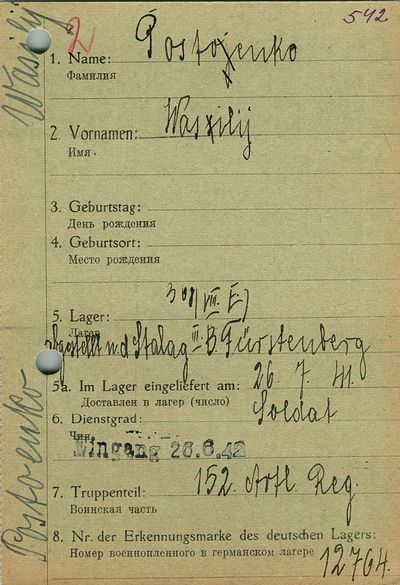 542
2
1. Name: Postoxenko
Фамилия
2. Vornamen: Wassilij
Имя.
3. Geburtstag:
День рождения
4. Geburtsort:
Место рождения
307 (VIII. E.)
5. Lager:
Лагер
abgestellt n/d Stalag III-B. Fürstenberg
5a. Im Lager eingeliefert am: 26. 7. 41.
Доставлен в лагер (число)
6. Dienstgrad: Soldat
Чин
Eingang 26.6.42
7. Truppenteil: 152. Artl. Reg.
Воинская часть
8. Nr. der Erkennungsmarke des deutschen Lagers:
Номер военнопленного в германском лагере 12764.
Postoenko Wassilij